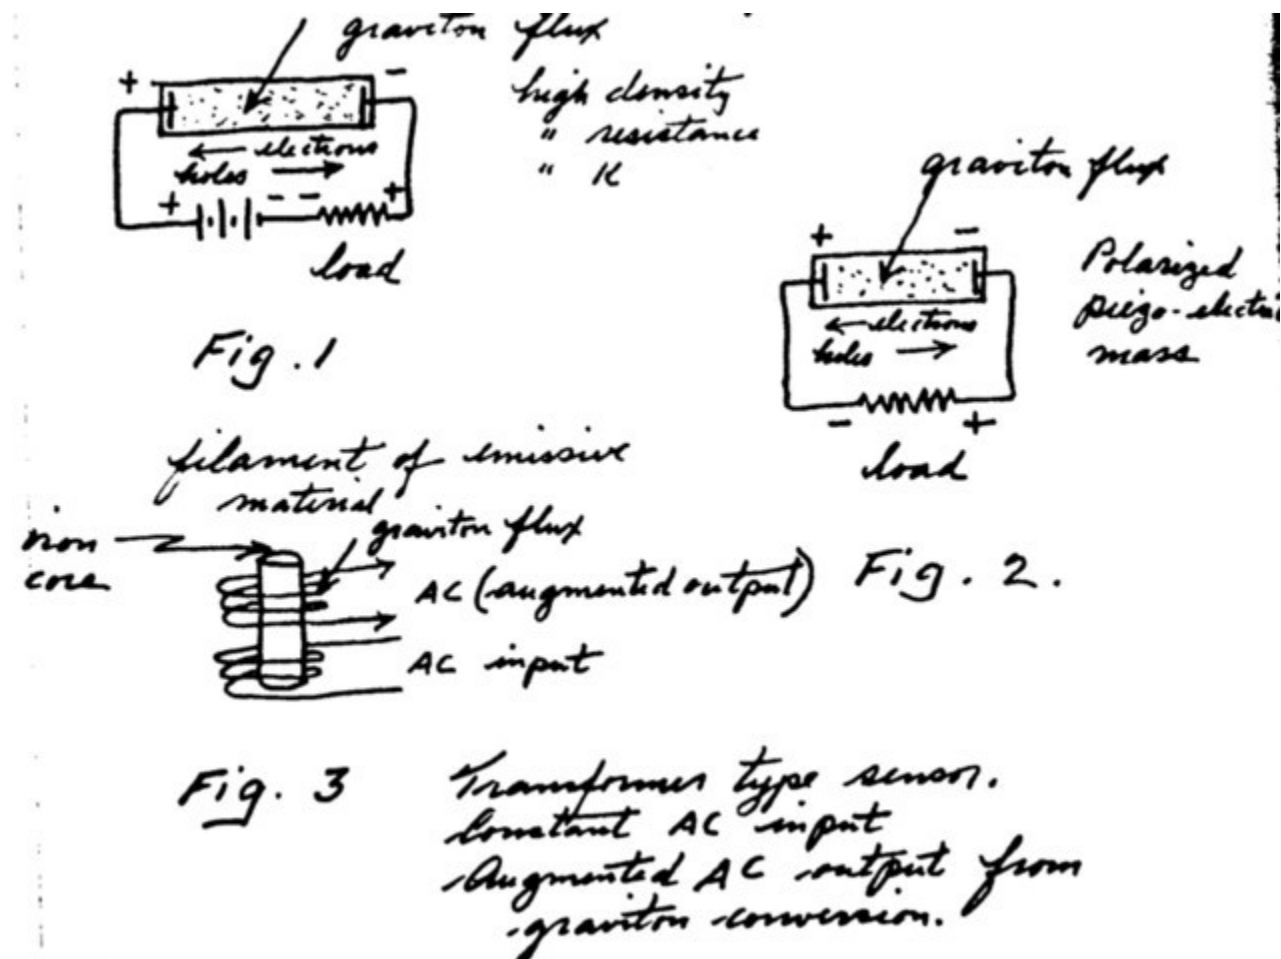 graviton flux
+ -
high density
" resistance
" K
← electrons
holes →
+ - - +
load
Fig. 1
graviton flux
+ -
Polarized
piezo-electri
mass
← electrons
holes →
- +
load
Fig. 2.
filament of emissive
material
graviton flux
iron
core
AC (augmented output)
AC input
Fig. 3
Transformer type sensor.
Constant AC input
Augmented AC output from
graviton conversion.